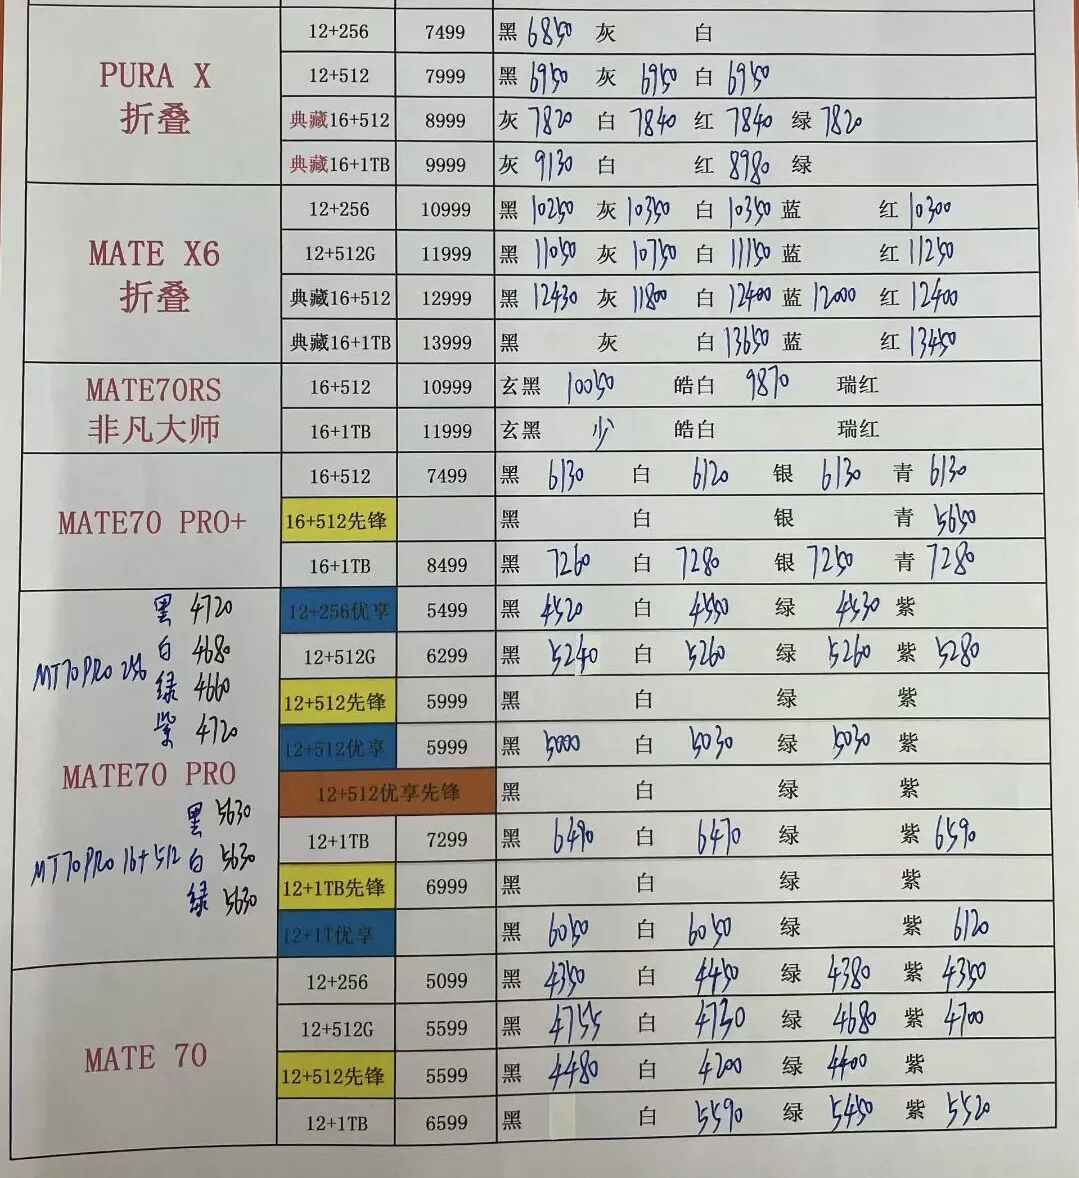 12+256 7499 黑 6850 灰 白
PURA X
折叠
12+512 7999 黑 6950 灰 6950 白 6950
典藏16+512 8999 灰 7820 白 7840 红 7840 绿 7820
典藏16+1TB 9999 灰 9130 白 红 8980 绿
12+256 10999 黑 10250 灰 10350 白 10350 蓝 红 10300
MATE X6
折叠
12+512G 11999 黑 11050 灰 10750 白 11150 蓝 红 11250
典藏16+512 12999 黑 12430 灰 11800 白 12400 蓝 12000 红 12400
典藏16+1TB 13999 黑 灰 白 13650 蓝 红 13450
MATE70RS
非凡大师
16+512 10999 玄黑 10050 皓白 9870 瑞红
16+1TB 11999 玄黑 少 皓白 瑞红
16+512 7499 黑 6130 白 6120 银 6130 青 6130
MATE70 PRO+
16+512先锋 黑 白 银 青 5650
16+1TB 8499 黑 7260 白 7280 银 7250 青 7280
黑 4720
MT70PRO 256 白 4680
绿 4660
紫 4720
MATE70 PRO
黑 5630
MT70PRO 16+512 白 5630
绿 5630
12+256优享 5499 黑 4520 白 4550 绿 4530 紫
12+512G 6299 黑 5240 白 5260 绿 5260 紫 5280
12+512先锋 5999 黑 白 绿 紫
12+512优享 5999 黑 5000 白 5030 绿 5030 紫
12+512优享先锋 黑 白 绿 紫
12+1TB 7299 黑 6490 白 6470 绿 紫 6590
12+1TB先锋 6999 黑 白 绿 紫
12+1T优享 黑 6050 白 6050 绿 紫 6120
MATE 70
12+256 5099 黑 4350 白 4450 绿 4380 紫 4350
12+512G 5599 黑 4755 白 4730 绿 4680 紫 4700
12+512先锋 5599 黑 4480 白 4200 绿 4400 紫
12+1TB 6599 黑 白 5590 绿 5450 紫 5520